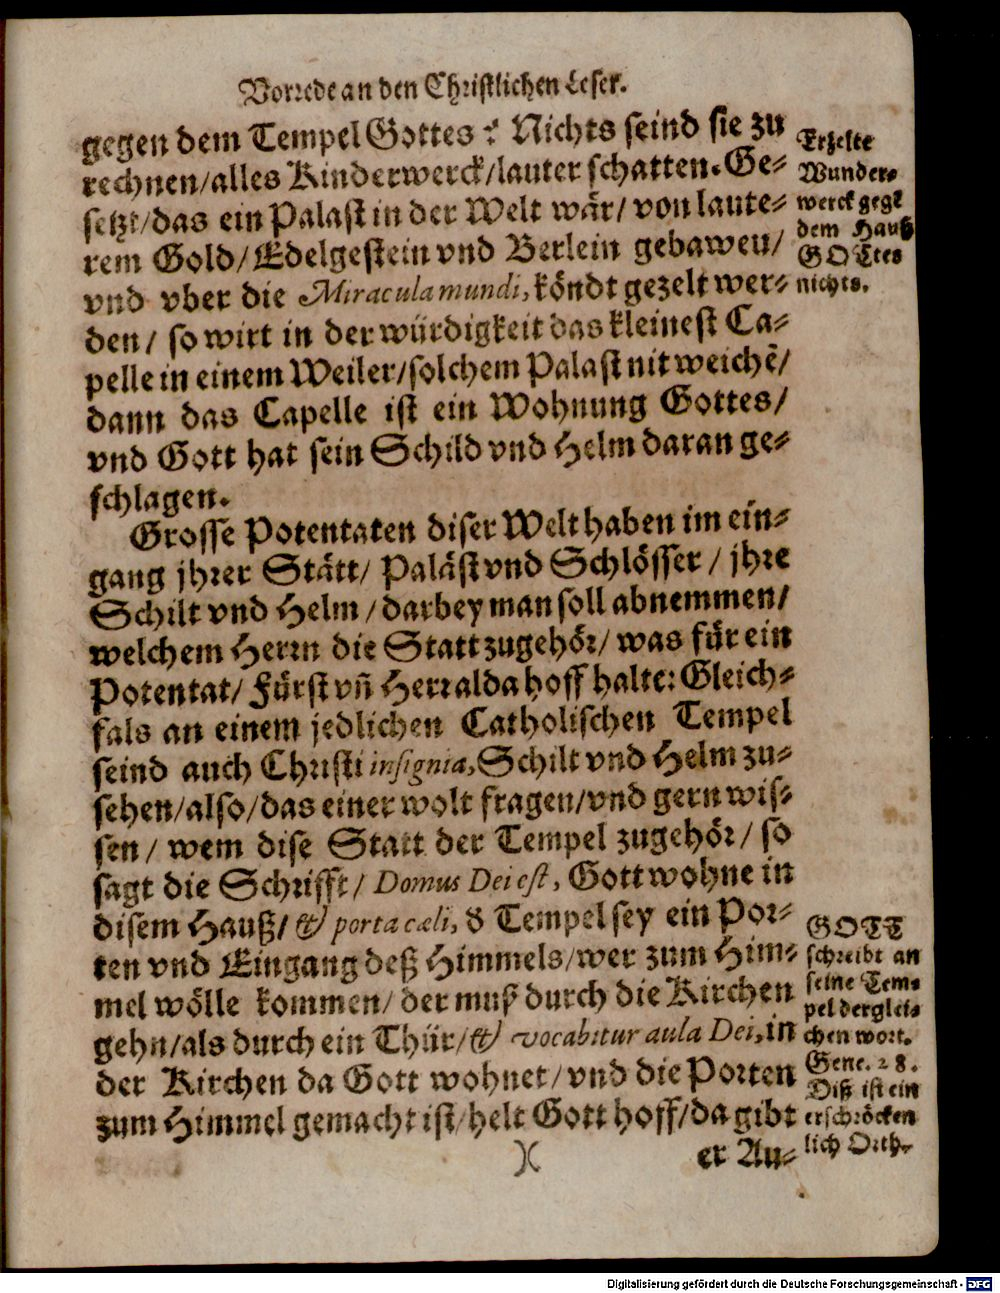 Vorrede an den Christlichen Leser.
gegen dem Tempel Gottes? Nichts seind sie zu
rechnen/alles Kinderwerck/lauter schatten. Ge-
setzt/das ein Palast in der Welt wär/ von laute-
rem Gold/Edelgestein vnd Berlein gebawen/
vnd vber die Miracula mundi, köndt gezelt wer-
den/ so wirt in der würdigkeit das kleinest Ca-
pelle in einem Weiler/solchem Palast nit weichẽ/
dann das Capelle ist ein Wohnung Gottes/
vnd Gott hat sein Schild vnd Helm daran ge-
schlagen.
Erzelte
Wunder-
werck gegẽ
dem Hauß
GOttes
nichts.
Grosse Potentaten diser Welt haben im ein-
gang jhrer Stätt/ Paläst vnd Schlösser / jhre
Schilt vnd Helm /darbey man soll abnemmen/
welchem Herrn die Statt zugehör/ was für ein
Potentat/ Fürst vñ Herr alda hoff halte: Gleich-
fals an einem jedlichen Catholischen Tempel
seind auch Christi insignia, Schilt vnd Helm zu-
sehen/also/das einer wolt fragen/vnd gern wis-
sen/ wem dise Statt der Tempel zugehör/ so
sagt die Schrifft/ Domus Dei est, Gott wohne in
disem Hauß/ & porta cæli, d Tempel sey ein Por-
ten vnd Eingang deß Himmels/wer zum Him-
mel wölle kommen/ der muß durch die Kirchen
gehn/als durch ein Thür/& vocabitur aula Dei, in
der Kirchen da Gott wohnet/vnd die Porten
zum Himmel gemacht ist/helt Gott hoff/da gibt
GOTT
schreibt an
seine Tem-
pel derglei-
chen wort.
Gene. 28.
Diß ist ein
erschröcken
lich Orth.
)( er Au-
Digitalisierung gefördert durch die Deutsche Forschungsgemeinschaft - DFG